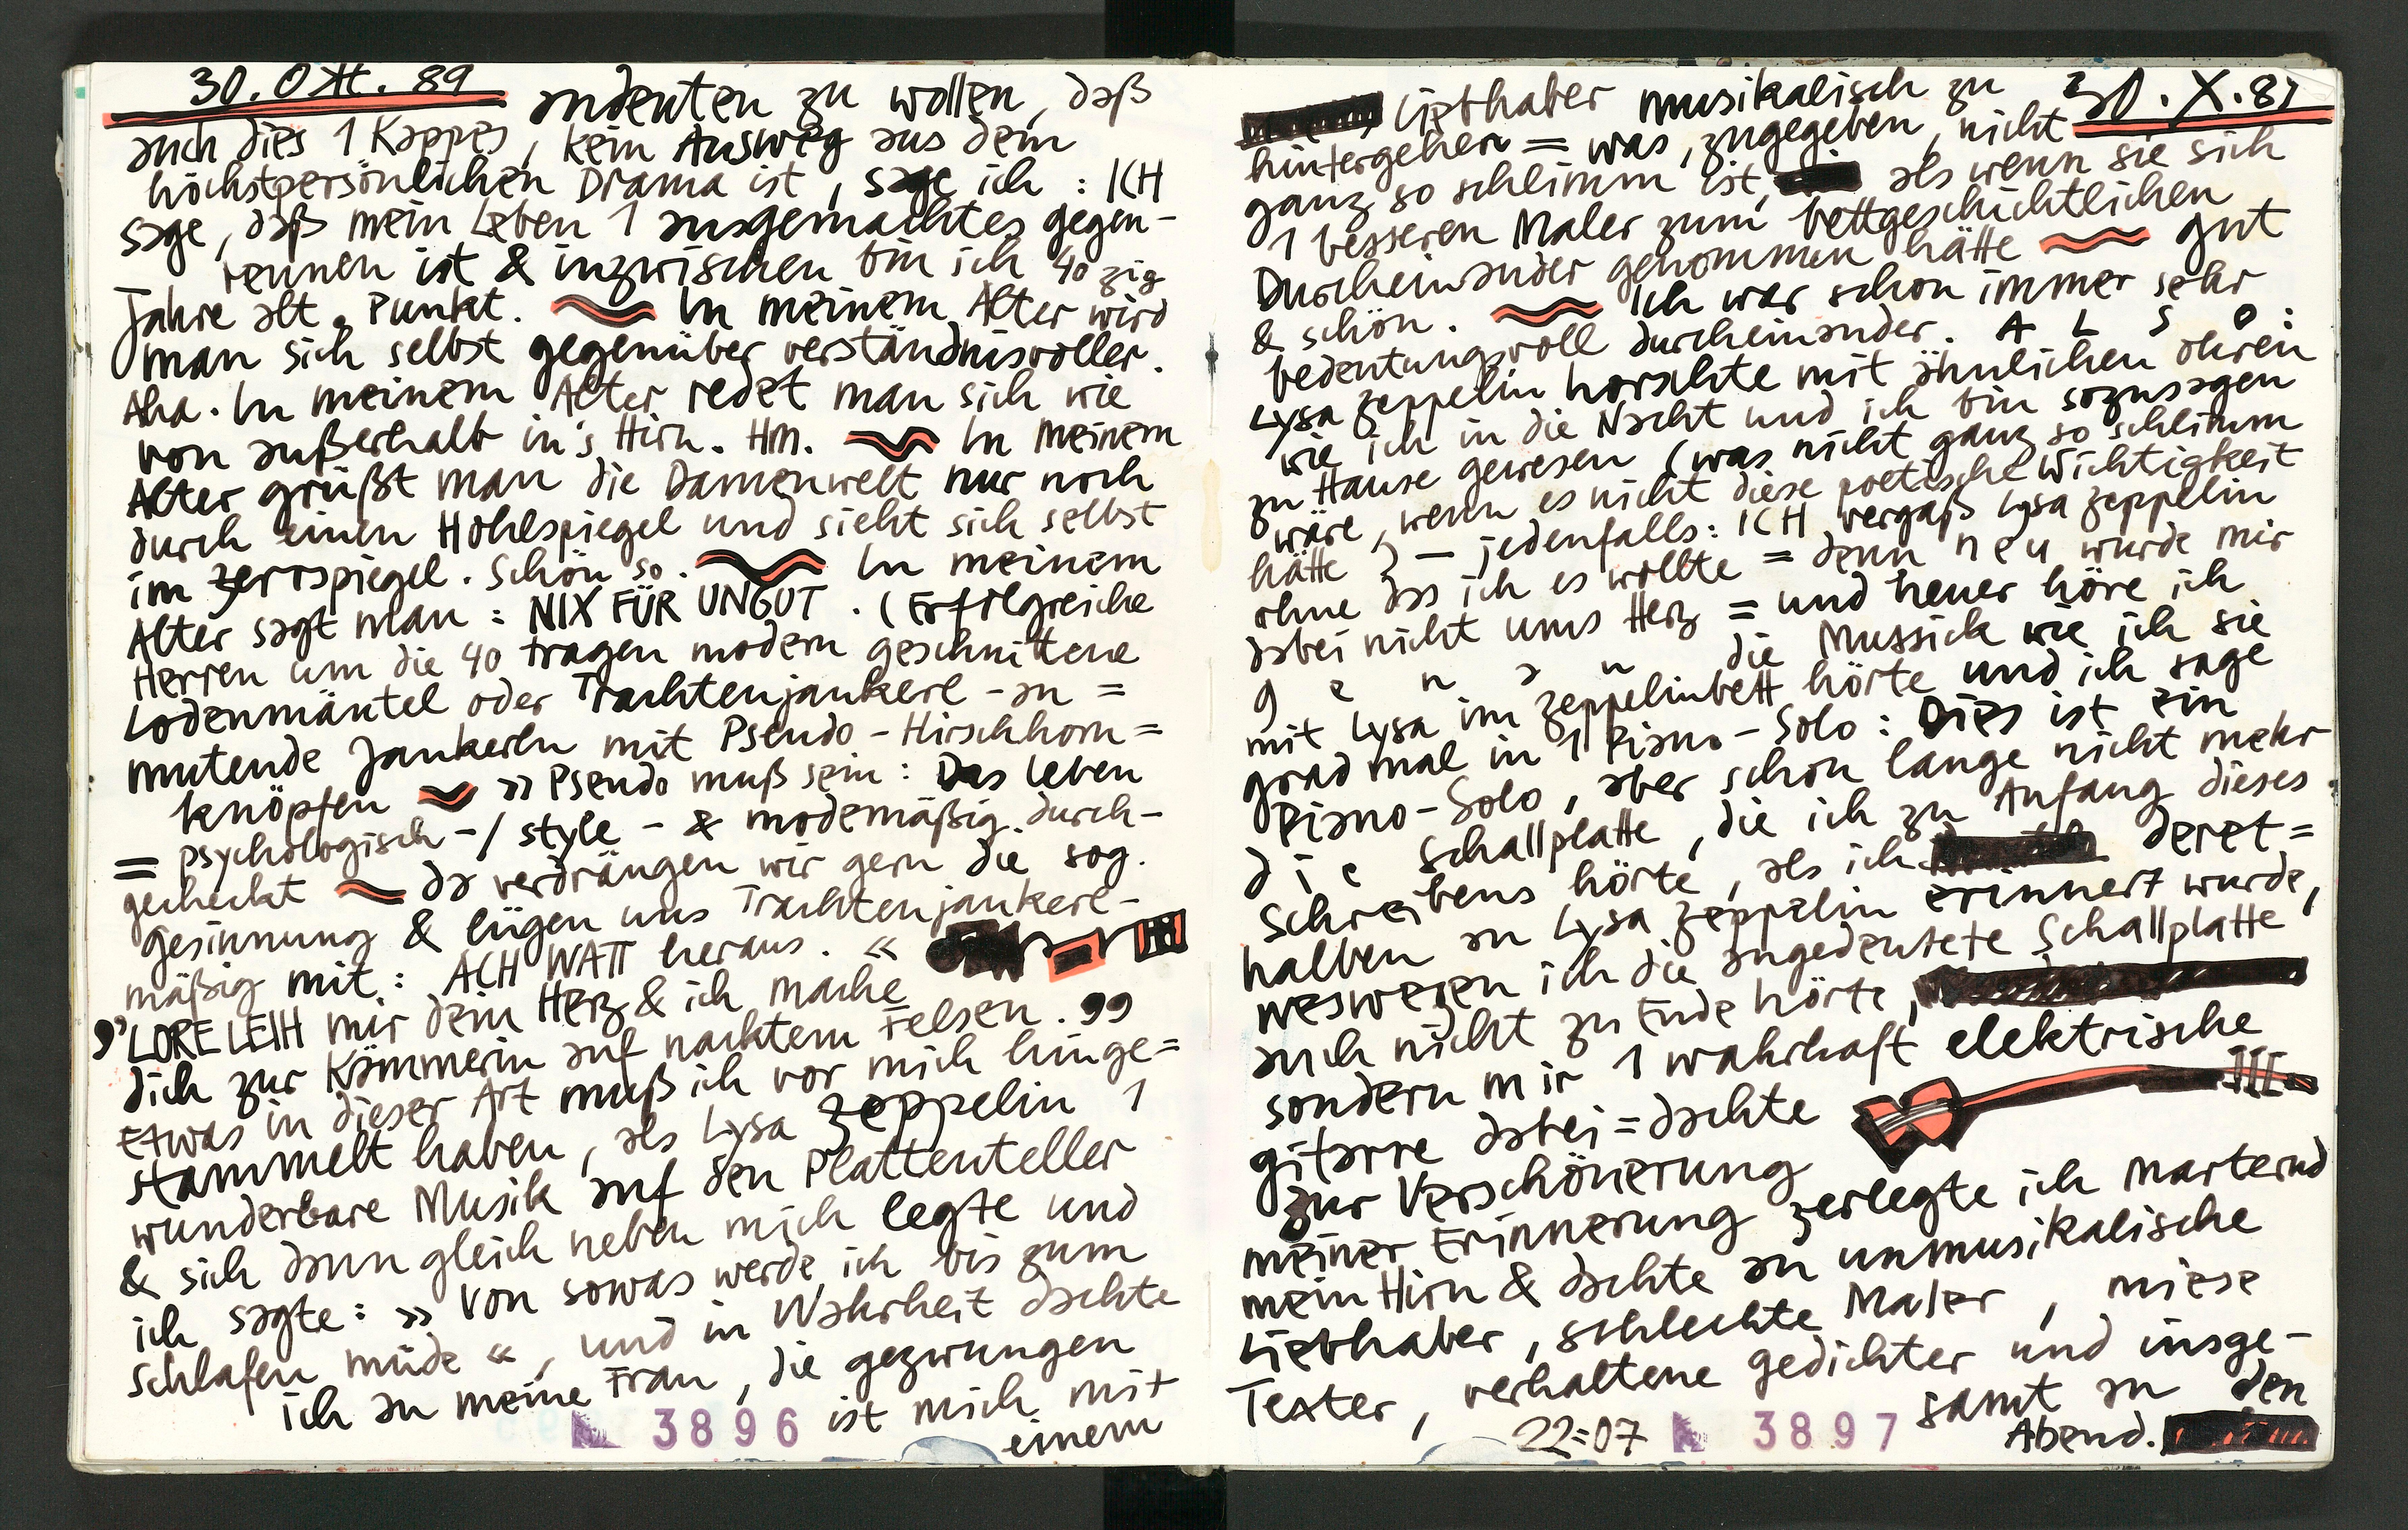 30. Okt. 89
andeuten zu wollen, daß
auch dies 1 Kappes, kein Ausweg aus dem
höchstpersönlichen Drama ist, sage ich : ICH
sage, daß mein Leben 1 ausgemachtes gegen-
rennen ist & inzwischen bin ich 40 zig
Jahre alt. Punkt. In meinem Alter wird
man sich selbst gegenüber verständnisvoller.
Aha. In meinem Alter redet man sich wie
von außerhalb in's Hirn. Hm. In meinem
Alter grüßt man die Damenwelt nur noch
durch einen Hohlspiegel und sieht sich selbst
im Zerrspiegel. Schön so. In meinem
Alter sagt man : NIX FÜR UNGUT. (Erfolgreiche
Herren um die 40 tragen modern geschnittene
Lodenmäntel oder Trachtenjankerl-an =
mutende Jankerln mit Pseudo-Hirschhorn =
knöpfen » Pseudo muß sein : Das Leben
= psychologisch-/ style - & modemäßig durch-
gecheckt da verdrängen wir gern die sog.
Gesinnung & lügen uns Trachtenjankerl-
mäßig mit : ACH WATT heraus. «
,,LORELEIH mir dein Herz & ich mache
dich zur Kämmerin auf nacktem Felsen. ,,
Etwas in dieser Art muß ich vor mich hinge=
stammelt haben, als Lysa Zeppelin 1
wunderbare Musik auf den Plattenteller
& sich dann gleich neben mich legte und
ich sagte : » Von sowas werde ich bis zum
schlafen müde «, und in Wahrheit dachte
ich an meine Frau, die gezwungen
ist mich mit
einem
3896
30. X. 89
Liebhaber musikalisch zu
hintergehen = was, zugegeben, nicht
ganz so schlimm ist, als wenn sie sich
1 besseren Maler zum bettgeschichtlichen
Durcheinander genommen hätte gut
& schön. Ich war schon immer sehr
bedeutungsvoll durcheinander. A L S O :
Lysa Zeppelin horschte mit ähnlichen Ohren
wie ich in die Nacht und ich bin sozusagen
zu Hause gewesen (was nicht ganz so schlimm
wäre, wenn es nicht diese poetische Wichtigkeit
hätte) — jedenfalls : ICH vergaß Lysa Zeppelin
ohne das ich es wollte = denn neu wurde mir
dabei nicht ums Herz = und heuer höre ich
g e n a u die Mussick wie ich sie
mit Lysa im Zeppelinbett hörte und ich sage
grad mal in 1 Piano-Solo : Dies ist ein
Piano-Solo, aber schon lange nicht mehr
d i e Schallplatte, die ich zu Anfang dieses
Schreibens hörte, als ich deret=
halben an Lysa Zeppelin erinnert wurde,
weswegen ich die angedeutete Schallplatte
auch nicht zu Ende hörte,
sondern mir 1 wahrhaft elektrische
gitarre dabei=dachte
zur Verschönerung
meiner Erinnerung zerlegte ich marternd
mein Hirn & dachte an unmusikalische
Liebhaber, schlechte Maler, miese
Texter, verhaltene Gedichter und insge-
samt an den
Abend.
22:07
3897